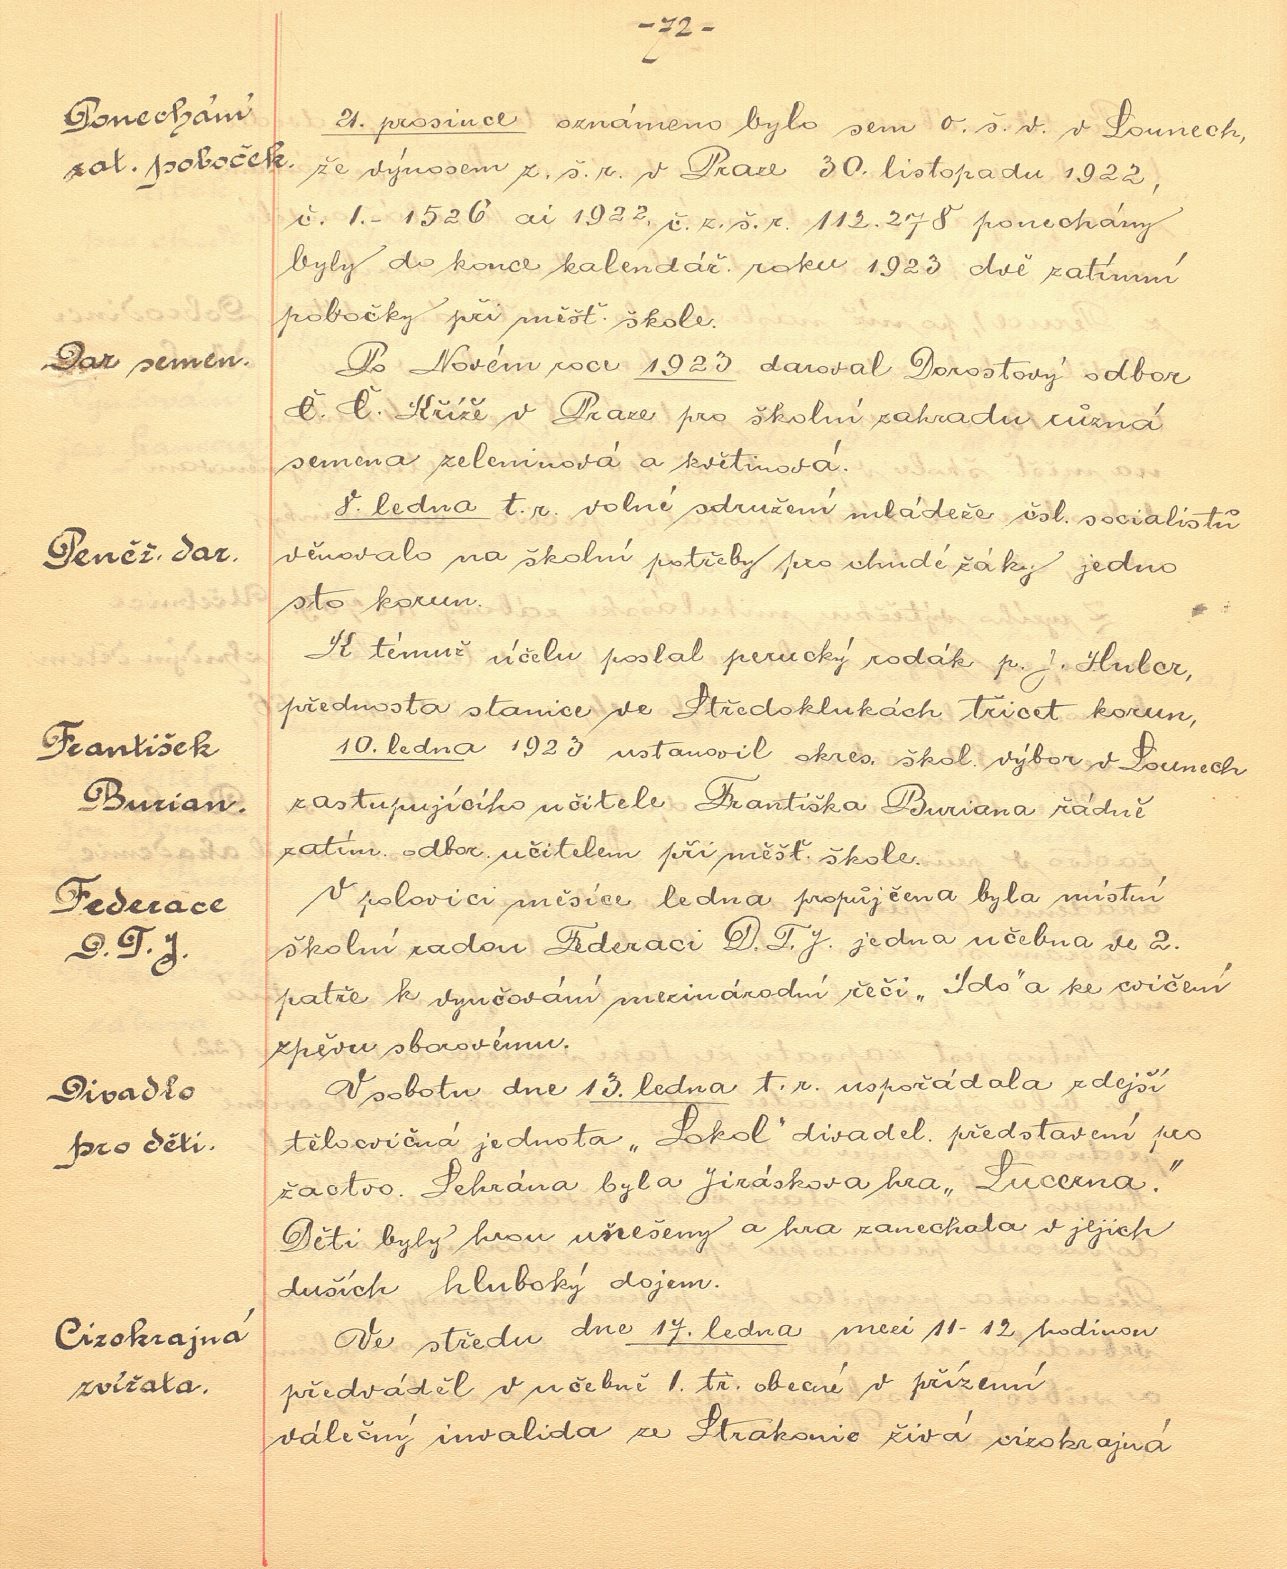 -72-
Ponechání
zat. poboček.
21. prosince oznámeno bylo sem o. š. v. v Lounech,
že výnosem z. š. r. v Praze 30. listopadu 1922,
č. I.- 1526 ai 1922, č. z. š. r. 112.278 ponechány
byly do konce kalendář. roku 1923 dvě zatímní
pobočky při měšť. škole.
Dar semen.
Po Novém roce 1923 daroval Dorostový odbor
Č. Č. Kříže v Praze pro školní zahradu různá
semena zeleninová a květinová.
8. ledna t. r. volné sdružení mládeže čsl. socialistů
Peněž. dar.
věnovalo na školní potřeby pro chudé žáky jedno
sto korun.
K témuž účelu poslal perucký rodák p. J. Hulcr,
přednosta stanice ve Středoklukách třicet korun,
František
Burian.
10. ledna 1923 ustanovil okres. škol. výbor v Lounech
zastupujícího učitele Františka Buriana řádně
zatím. odbor. učitelem při měšť. škole.
Federace
D. T. J.
V polovici měsíce ledna propůjčena byla místní
školní radou Federaci D. T. J. jedna učebna ve 2.
patře k vyučování mezinárodní řeči „Ido" a ke cvičení
zpěvu sborovému.
Divadlo
pro děti.
V sobotu dne 13. ledna t. r. uspořádala zdejší
tělocvičná jednota „Sokol" divadel. představení pro
žactvo. Sehrána byla Jiráskova hra „Lucerna."
Děti byly hrou unešeny a hra zanechala v jejich
duších hluboký dojem.
Cizokrajná
zvířata.
Ve středu dne 17. ledna mezi 11-12 hodinou
předváděl v učebně 1. tř. obecné v přízemí
válečný invalida ze Strakonic živá cizokrajná